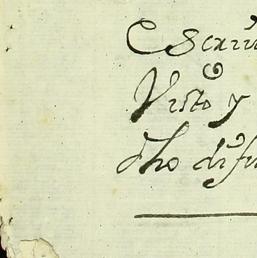 Escriv
Visto y
dho difu